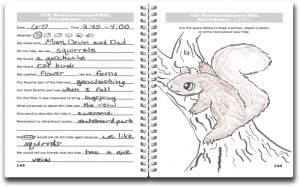 Date 6-27 Time 2:45 to 4:00
Weather
We hiked with Mom, Devin and Dad
On our hike, we saw squirrels
We found a geocache
We heard cat birds
We smelled flower We felt ferns
Our favorite part of the hike was geocaching
Our least part was when I fell
For this hike, it was important to bring bugspray
What surprised us about this hike was the veiw
One word to describe this hike is awesome
Restaurants or attractions nearby skateboard park
We would not do this hike again because we like
squirrels
We would tell our friends this hike has a nice
veiw
142
Use the space below to draw a picture, attach a photo,
or write more about your hike.
143